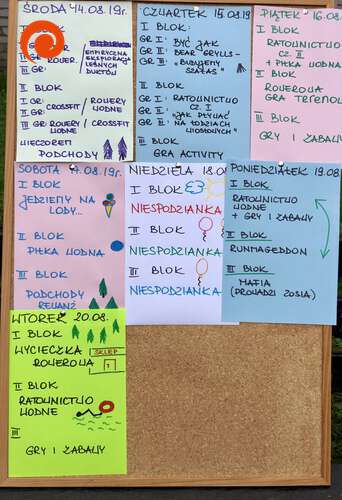 ŚRODA 14.08.19r.
I BLOK:
I GR:
II GR: ROWER.
III GR:
EMPIRYCZNA
EKSPLORACJA
LEŚNYCH
DUKTÓW
II BLOK
I GR:
II GR: CROSSFIT / ROWERY WODNE
III GR: ROWERY WODNE / CROSSFIT
WIECZOREM
PODCHODY
CZWARTEK 15.08.19
I BLOK:
GR I: BYĆ JAK
GR II: BEAR GRYLLS -
GR III: "BUDUJEMY
SZAŁAS"
II BLOK
GR I: RATOWNICTWO
GR II: CZ. I
GR III: "JAK PŁYWAĆ
NA ŁODZIACH
WIOSŁOWYCH"
III BLOK
GRA ACTIVITY
PIĄTEK 16.08
I BLOK
RATOWNICTWO
CZ. II
+ PIŁKA WODNA
II BLOK
ROWEROWA
GRA TERENO
III BLOK:
GRY I ZABAWY
SOBOTA 17.08.19r.
I BLOK
JEDZIEMY NA
LODY...
II BLOK
PIŁKA WODNA
III BLOK
PODCHODY
REWANŻ
NIEDZIELA 18.0
I BLOK
NIESPODZIANKA
II BLOK
NIESPODZIANKA
III BLOK
NIESPODZIANKA
PONIEDZIAŁEK 19.08
I BLOK.
RATOWNICTWO
WODNE
+ GRY I ZABAWY
II BLOK.
RUNMAGEDDON
III BLOK.
MAFIA
(PROWADZI ZOSIA)
WTOREK 20.08.
I BLOK
WYCIECZKA
SKLEP
ROWEROWA
II BLOK
RATOWNICTWO
WODNE
III
GRY I ZABAWY